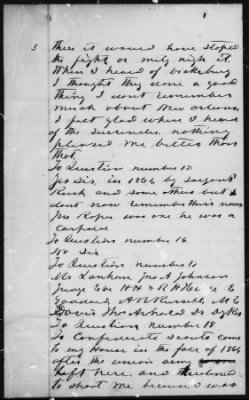 3
there it would have stoped
the fight or mity nigh it.
When I heard of vicksburg
I thought they done a good
thing I dont remember
much about New orleans
I felt glad when I heard
of the surrender nothing
pleased me better than
that.
To Question number 15
yes Sir, in 1864 by sargent
Rush and some others but I
dont now remember their names
Jno Roper was one he was a
Corporal
To Question number 16
No Sir
To Question number 17
Mr Lanham, Jno A Johnson
Judge E H H & R H
Goodard A R Russell, M E
Davis Thos Arnold Dr Sykes
To Question number 18
To Confederate scouts come
to my House in the face of 1864
after the union army
left here, and threatened
to shoot me because I was